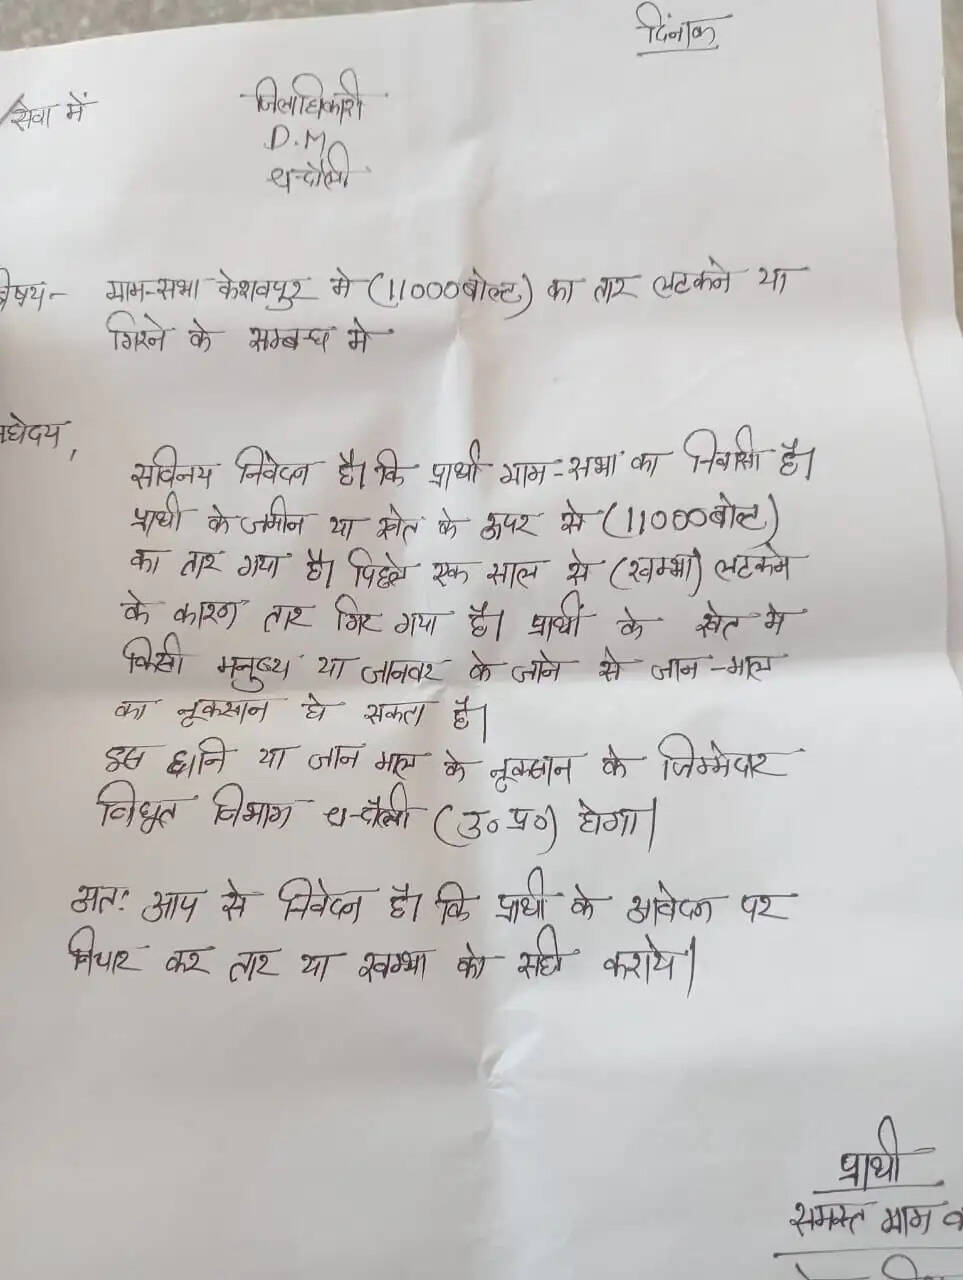 दिंनाक
सेवा में
जिलाधिकारी
D.M
चन्दौली
विषय- ग्राम-सभा केशवपुर मे (11000बोल्ट) का तार लटकने या
गिरने के सम्बन्ध मे
महोदय,
सविनय निवेदन है। कि प्रार्थी ग्राम-सभा का निवासी है।
प्रार्थी के जमीन या खेत के ऊपर से (11000बोल्ट)
का तार गया है। पिछले एक साल से (खम्भा) लटकने
के कारण तार गिर गया है। प्रार्थी के खेत मे
किसी मनुष्य या जानवर के जाने से जान-माल
का नूकसान हो सकता है।
इस हानि या जान माल के नूकसान के जिम्मेदार
विधुत विभाग चन्दौली (उ० प्र०) होगा।
अतः आप से निवेदन है। कि प्रार्थी के आवेदन पर
विचार कर तार या खम्भा को सही कराये।
प्रार्थी
समस्त ग्राम